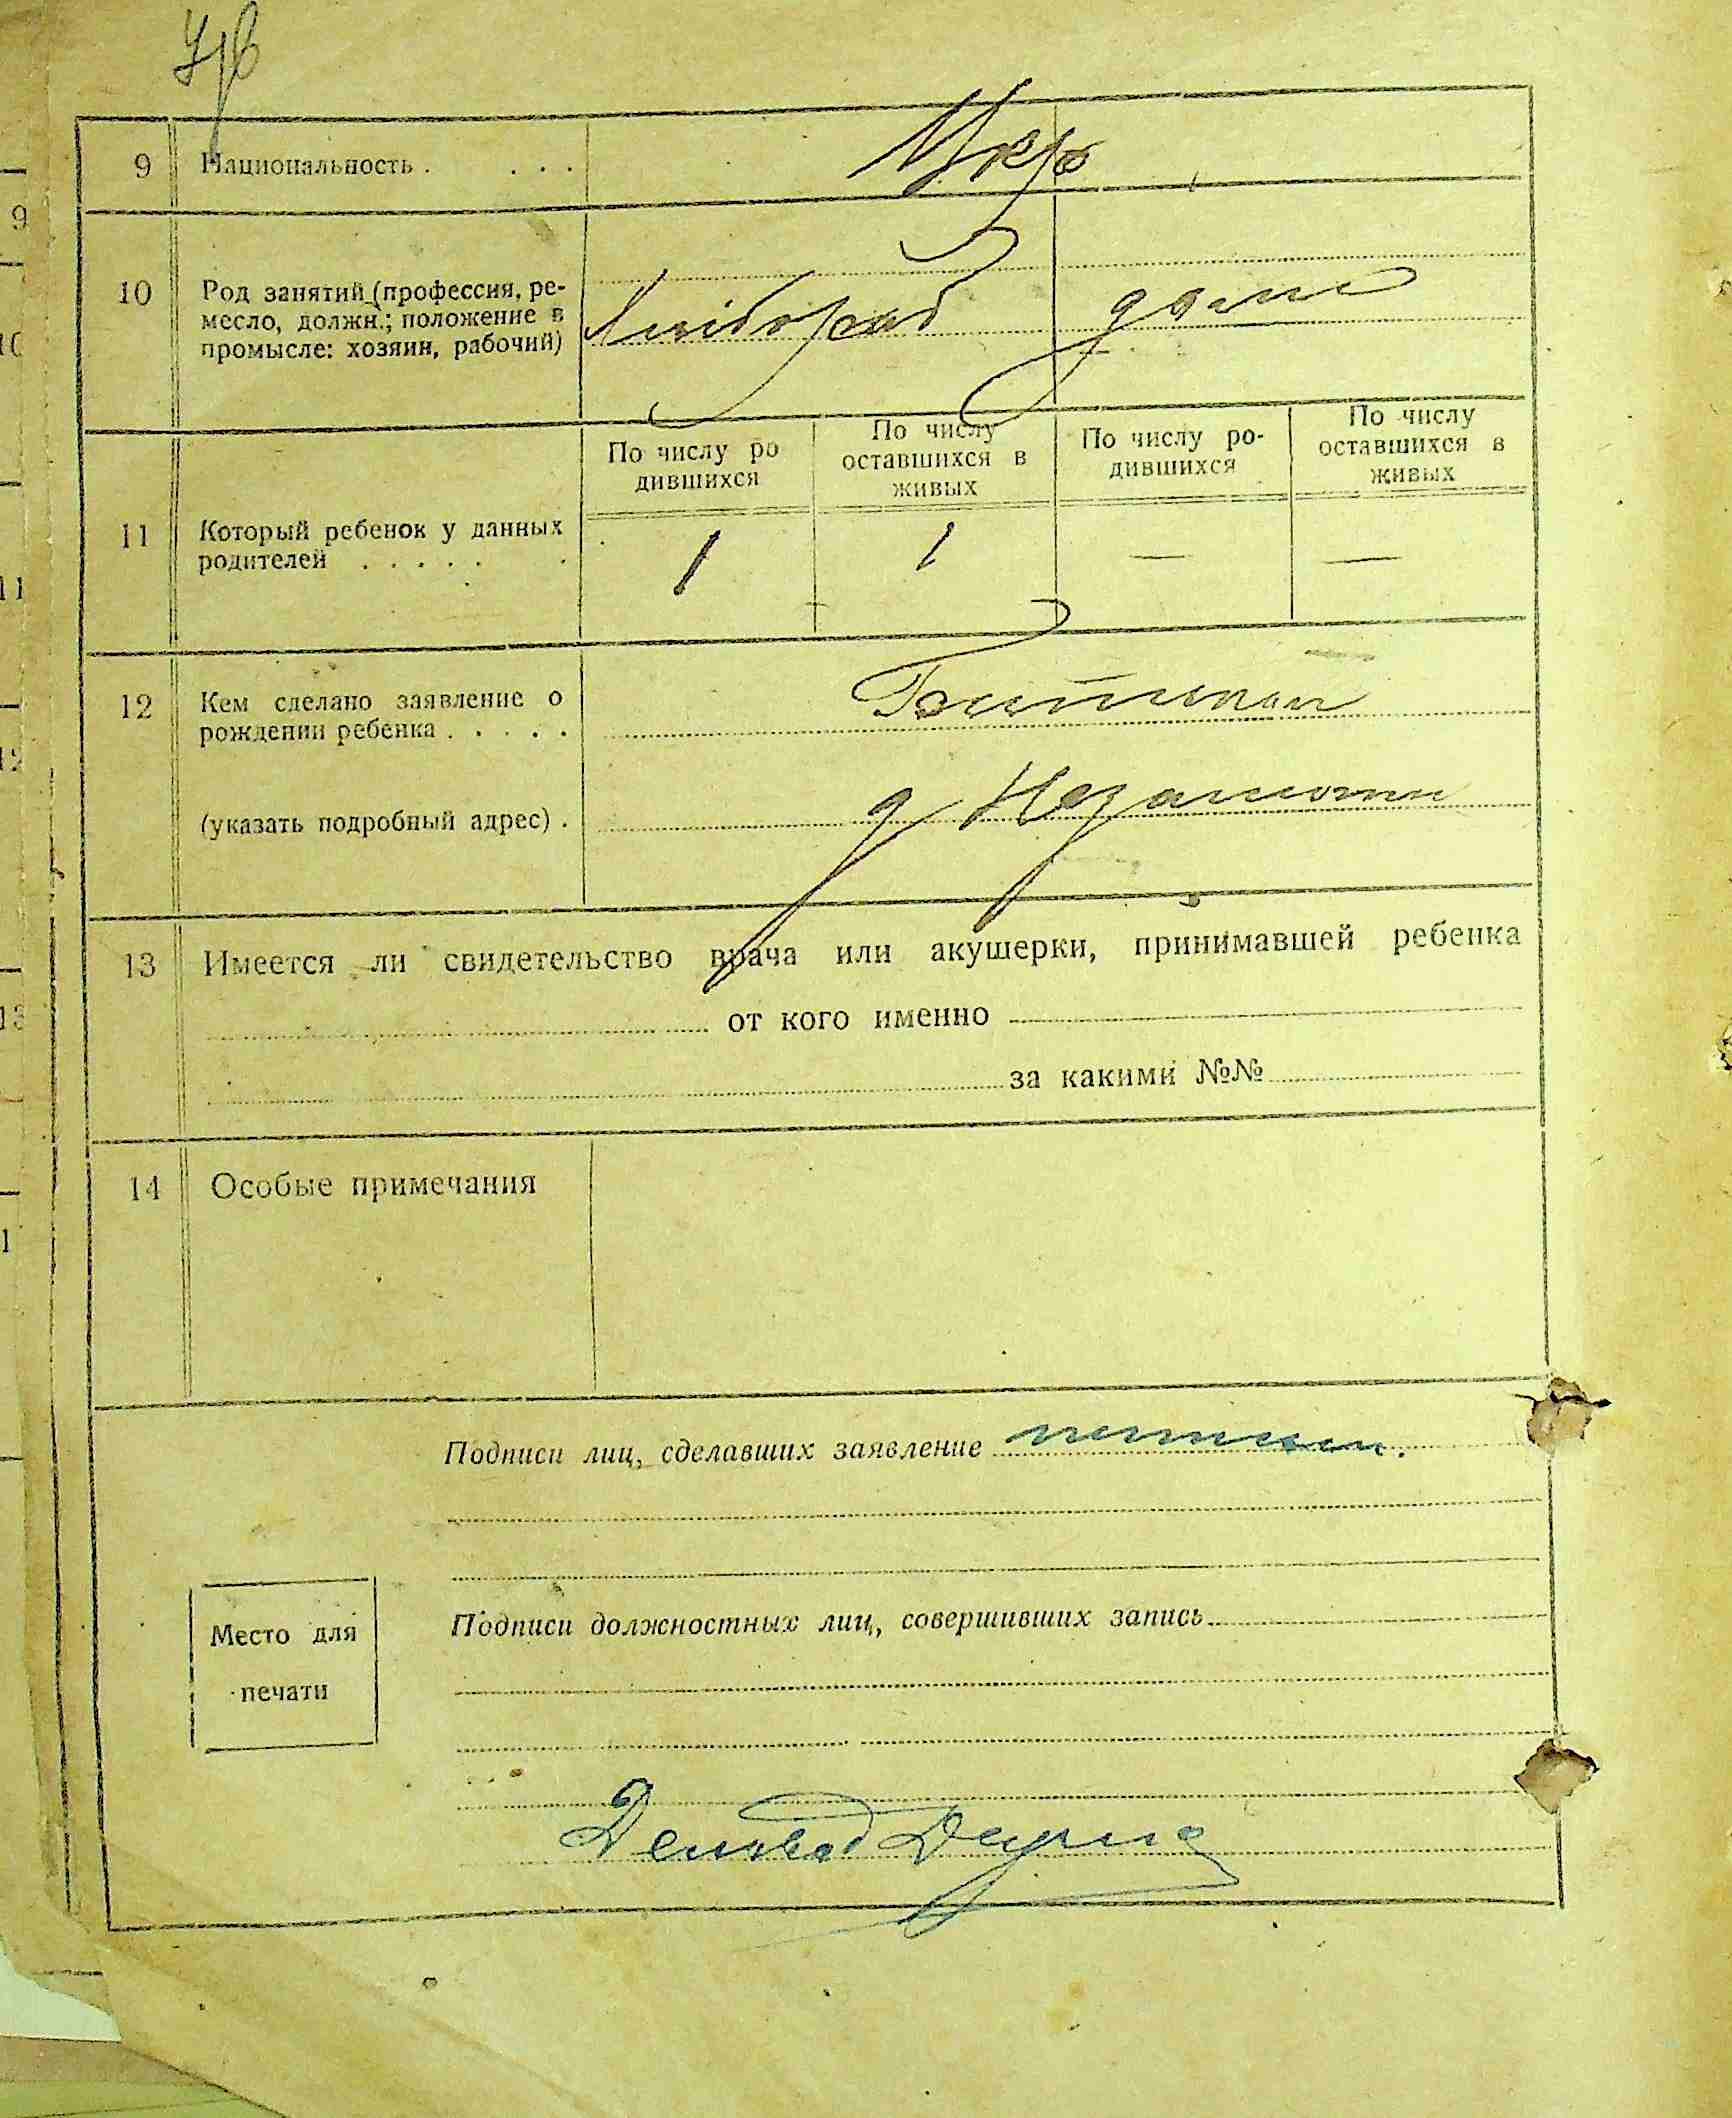 9 Национальность . . . . Укр
10 Род занятий (профессия, ре-
месло, должн.; положение в
промысле: хозяин, рабочий)
Хлібороб дома
По числу ро
дившихся
По числу
оставшихся в
живых
По числу ро-
дившихся
По числу
оставшихся в
живых
11 Который ребенок у данных
родителей . . . . . .
1 1 — —
12 Кем сделано заявление о
рождении ребенка . . . . .
(указать подробный адрес) .
13 Имеется ли свидетельство врача или акушерки, принимавшей ребенка
от кого именно
за какими №№
14 Особые примечания
Подписи лиц, сделавших заявление
Подписи должностных лиц, совершивших запись
Место для
печати
9
10
11
12
13
1